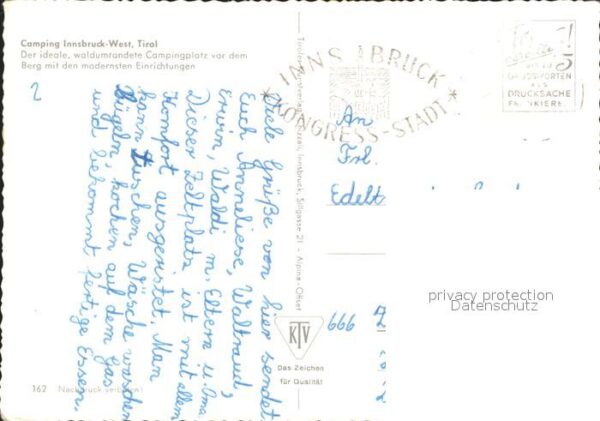 Camping Innsbruck-West, Tirol
Der ideale, waldumrandete Campingplatz vor dem
Berg mit den modernsten Einrichtungen
2
Viele Grüße von hier sendet
Euch Anneliese, Waltraud,
Erwin, Waldi m. Eltern u. Oma
Dieser Zeltplatz ist mit allem
Komfort ausgerüstet. Man
kann duschen, Wäsche waschen
bügeln, kochen auf dem Gas
und bekommt fertige Essen.
162 Nachdruck verboten!
Innsbruck, Sillgasse 21 - Alpina-Offset
KTV
Das Zeichen
für Qualität
INNSBRUCK
*KONGRESS-STADT*
DRUCKSACHE
An
Frl.
Edelt
666
privacy protection
Datenschutz